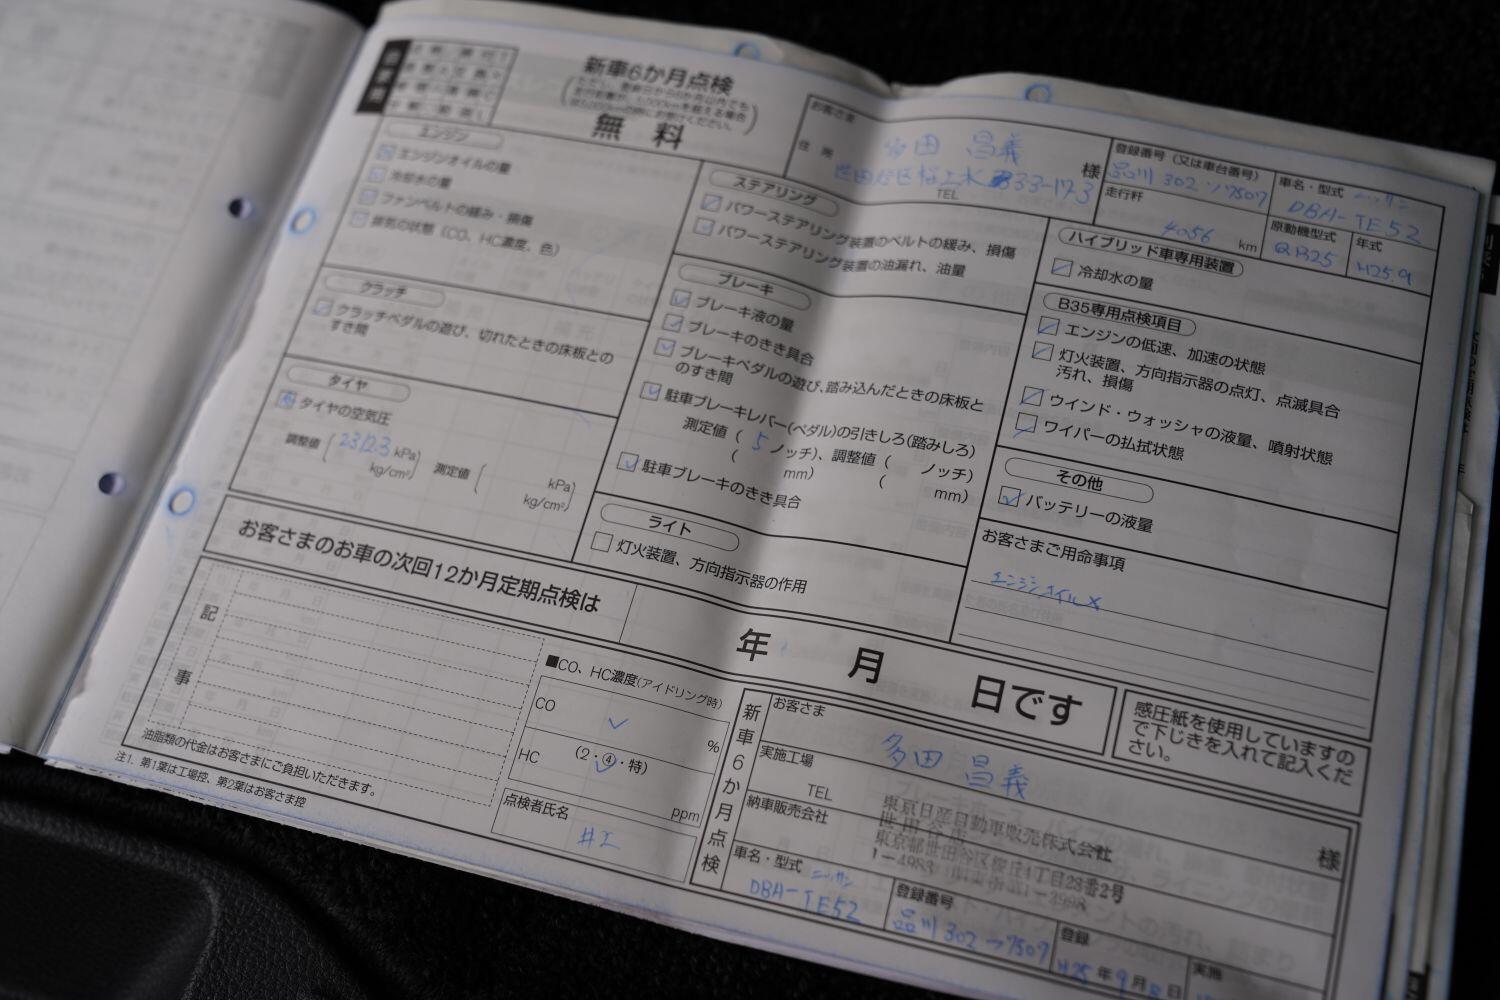 新車6か月点検
無 料
お客さま
住 所
多田 昌義
様
TEL
登録番号（又は車台番号）
品川 302
7507
車名・型式
ニッサン
DBA-TE52
走行粁
4056 km
原動機型式
QR25
年式
H25.9
エンジン
エンジンオイルの量
冷却水の量
ファンベルトの緩み・損傷
排気の状態（CO、HC濃度、色）
クラッチ
クラッチペダルの遊び、切れたときの床板との
すき間
タイヤ
タイヤの空気圧
調整値
kPa
kg/cm²
測定値
kPa
kg/cm²
ステアリング
パワーステアリング装置のベルトの緩み、損傷
パワーステアリング装置の油漏れ、油量
ブレーキ
ブレーキ液の量
ブレーキのきき具合
ブレーキペダルの遊び、踏み込んだときの床板と
のすき間
駐車ブレーキレバー（ペダル）の引きしろ（踏みしろ）
測定値（ 5 ノッチ）、調整値（ ノッチ）
（ mm） （ mm）
駐車ブレーキのきき具合
ライト
灯火装置、方向指示器の作用
ハイブリッド車専用装置
冷却水の量
B35専用点検項目
エンジンの低速、加速の状態
灯火装置、方向指示器の点灯、点滅具合
汚れ、損傷
ウインド・ウォッシャの液量、噴射状態
ワイパーの払拭状態
その他
バッテリーの液量
お客さまご用命事項
エンジンオイル
お客さまのお車の次回12か月定期点検は
年 月 日です
感圧紙を使用していますの
で下じきを入れて記入くだ
さい。
記
事
油脂類の代金はお客さまにご負担いただきます。
注1. 第1葉は工場控、第2葉はお客さま控
■CO、HC濃度（アイドリング時）
CO
%
HC
（2・④・特）
ppm
点検者氏名
井上
新車6か月点検
お客さま
多田 昌義
様
実施工場
TEL
納車販売会社
東京日産自動車販売株式会社
世田谷店
東京都世田谷区桜丘4丁目28番2号
車名・型式
ニッサン
DBA-TE52
登録番号
品川 302
7507
登録
H25 年 9 月
日
実施